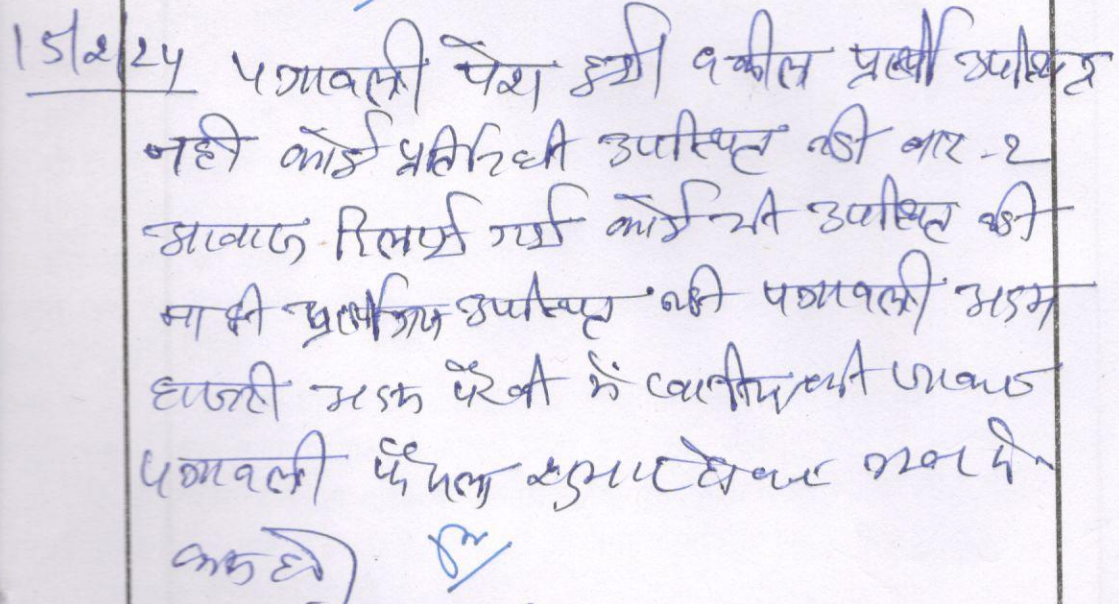 15/2/24 पत्रावली पेश हुयी वकील प्रार्थी उपस्थित
नही कोई प्रतिनिधी उपस्थित नही बार-2
आवाज दिलाई गई कोई भी उपस्थित नही
ना ही प्रार्थीगण उपस्थित नही पत्रावली अदम
हाजरी अदम पैरवी में खारीज की जाकर
पत्रावली फैसला शुमार होकर